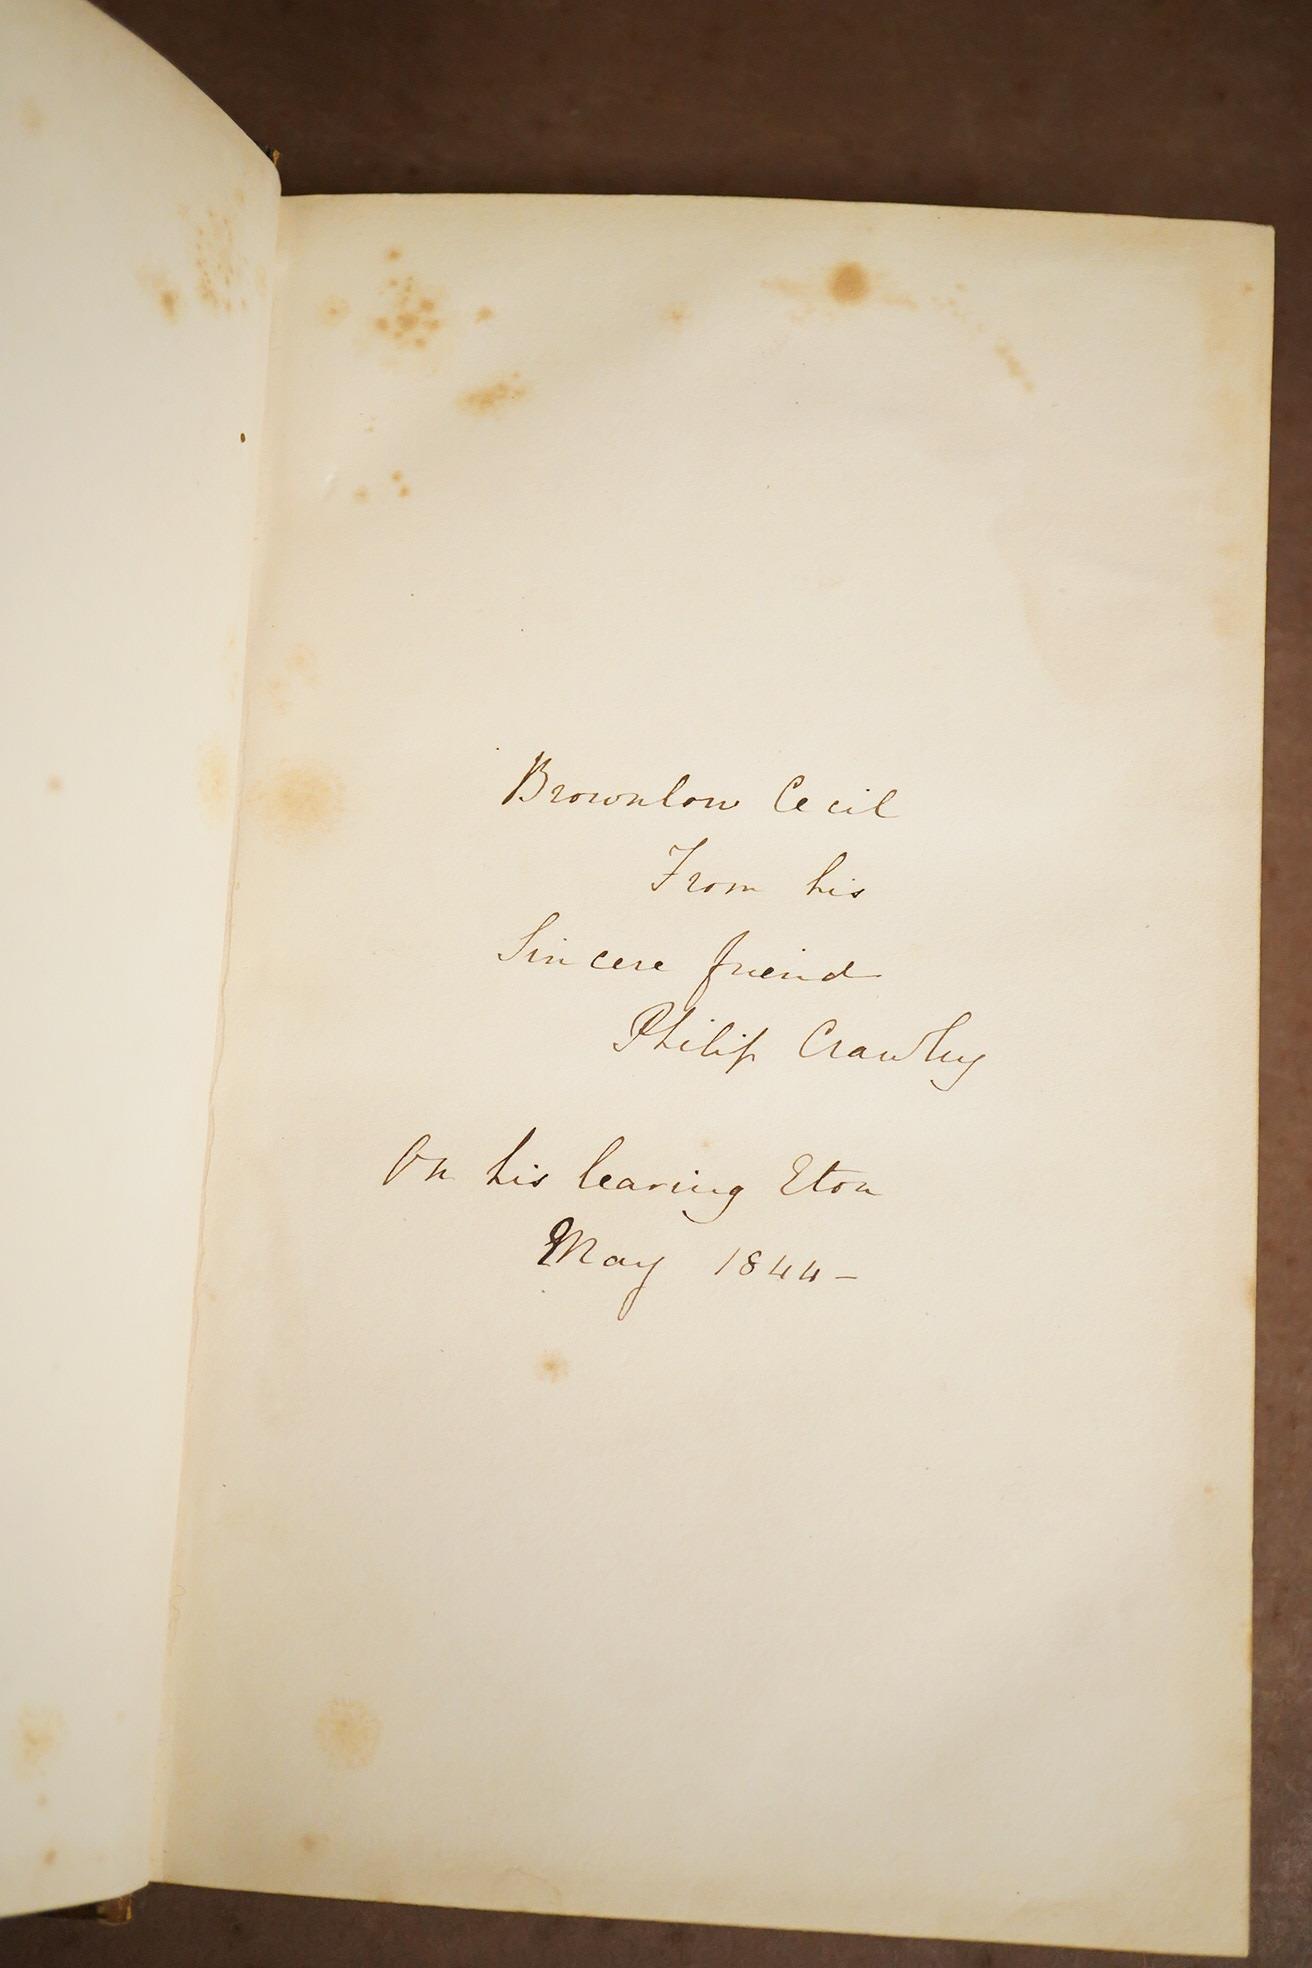 Brownlow Cecil
From his
Sincere friend
Philip Crawley
On his leaving Eton
May 1844 –